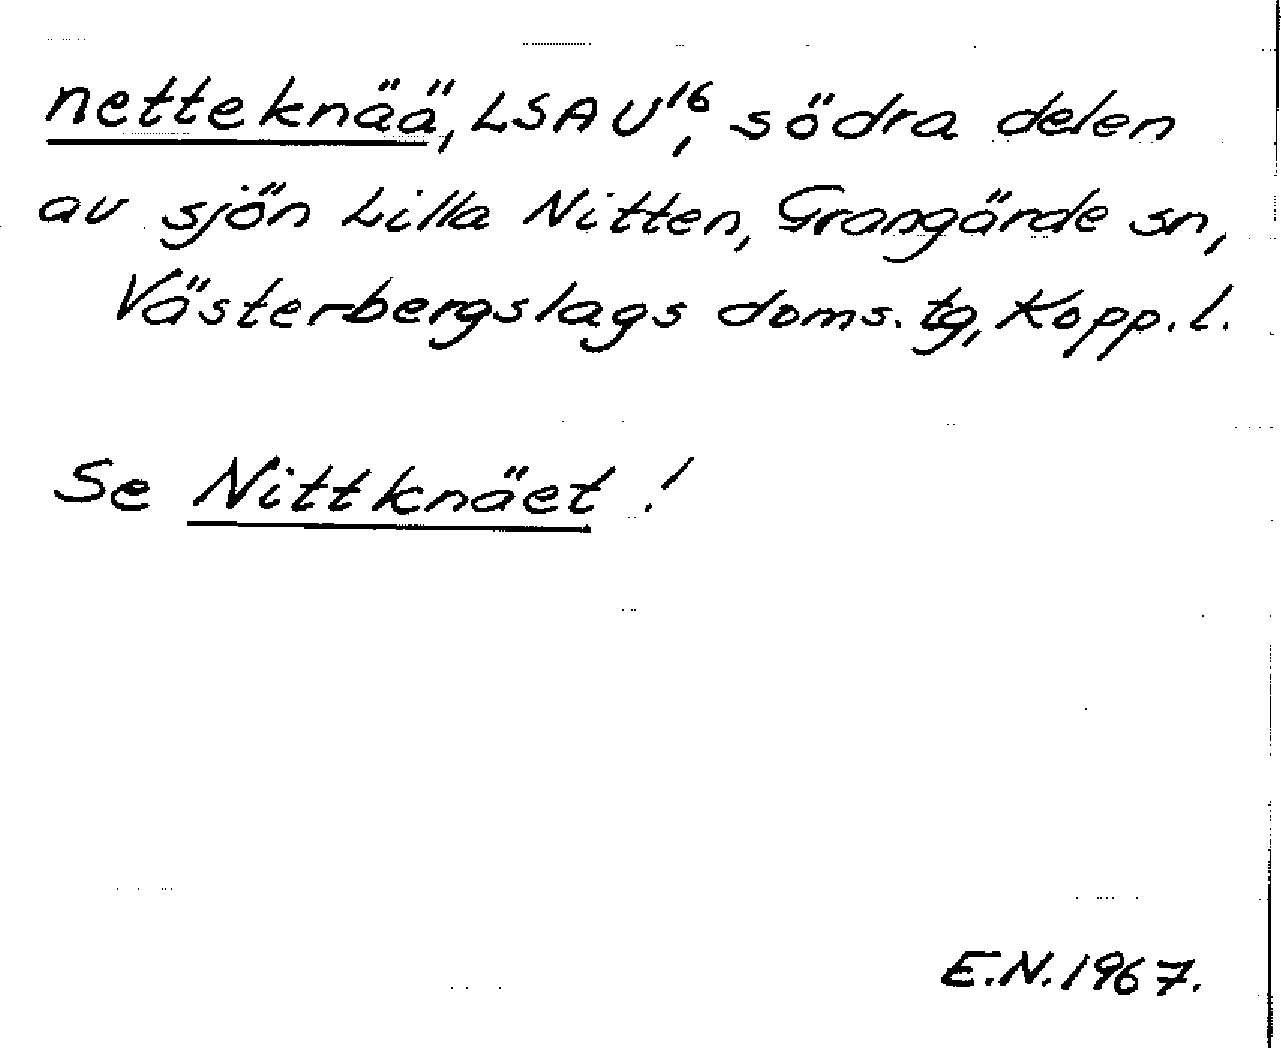 netteknää, LSA U16, södra delen
av sjön Lilla Nitten, Grangärde sn,
Västerbergslags doms. tg, Kopp. l.
Se Nittknäet !
E.N. 1967.